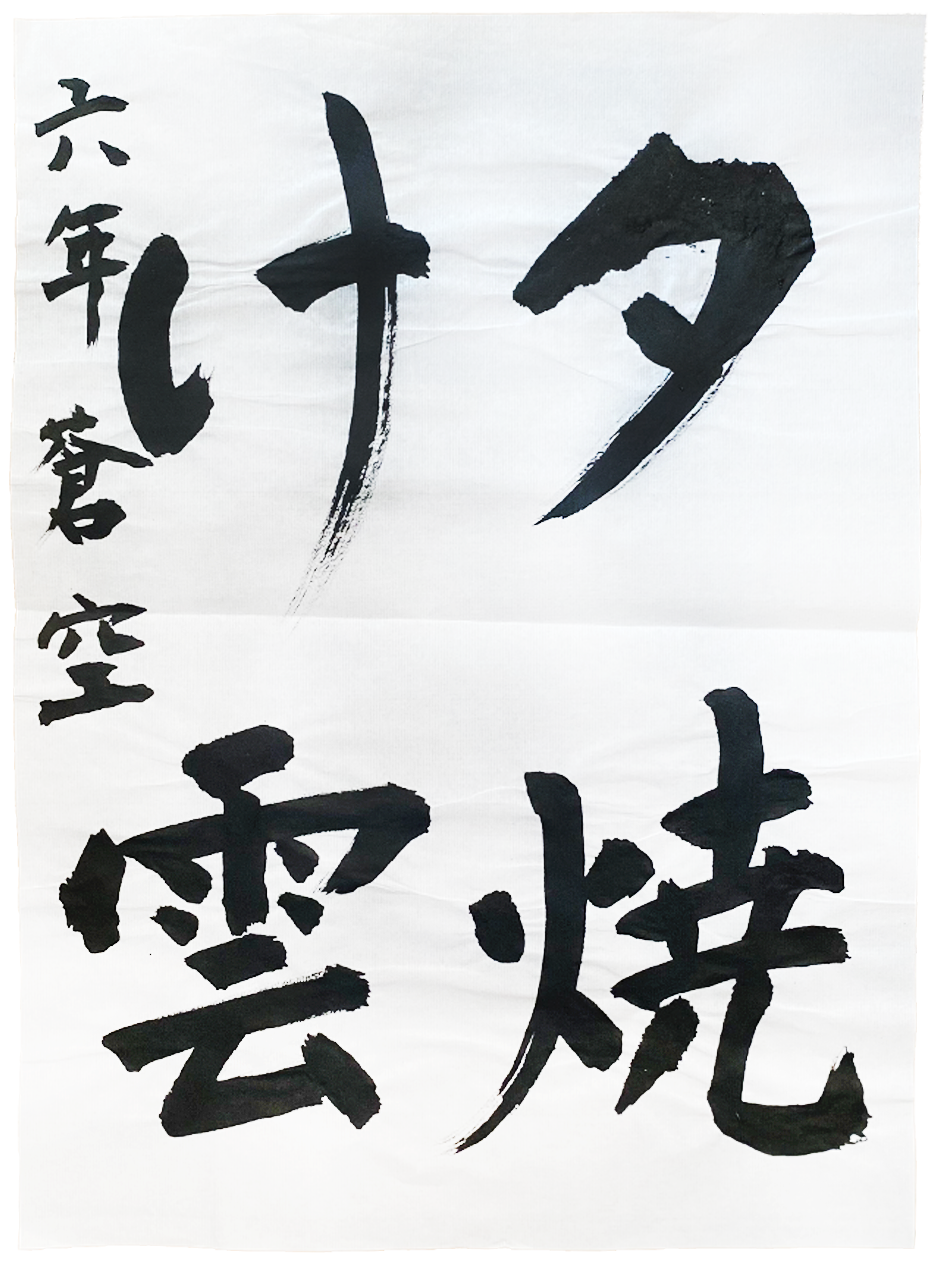 夕焼
け雲
六年 蒼空